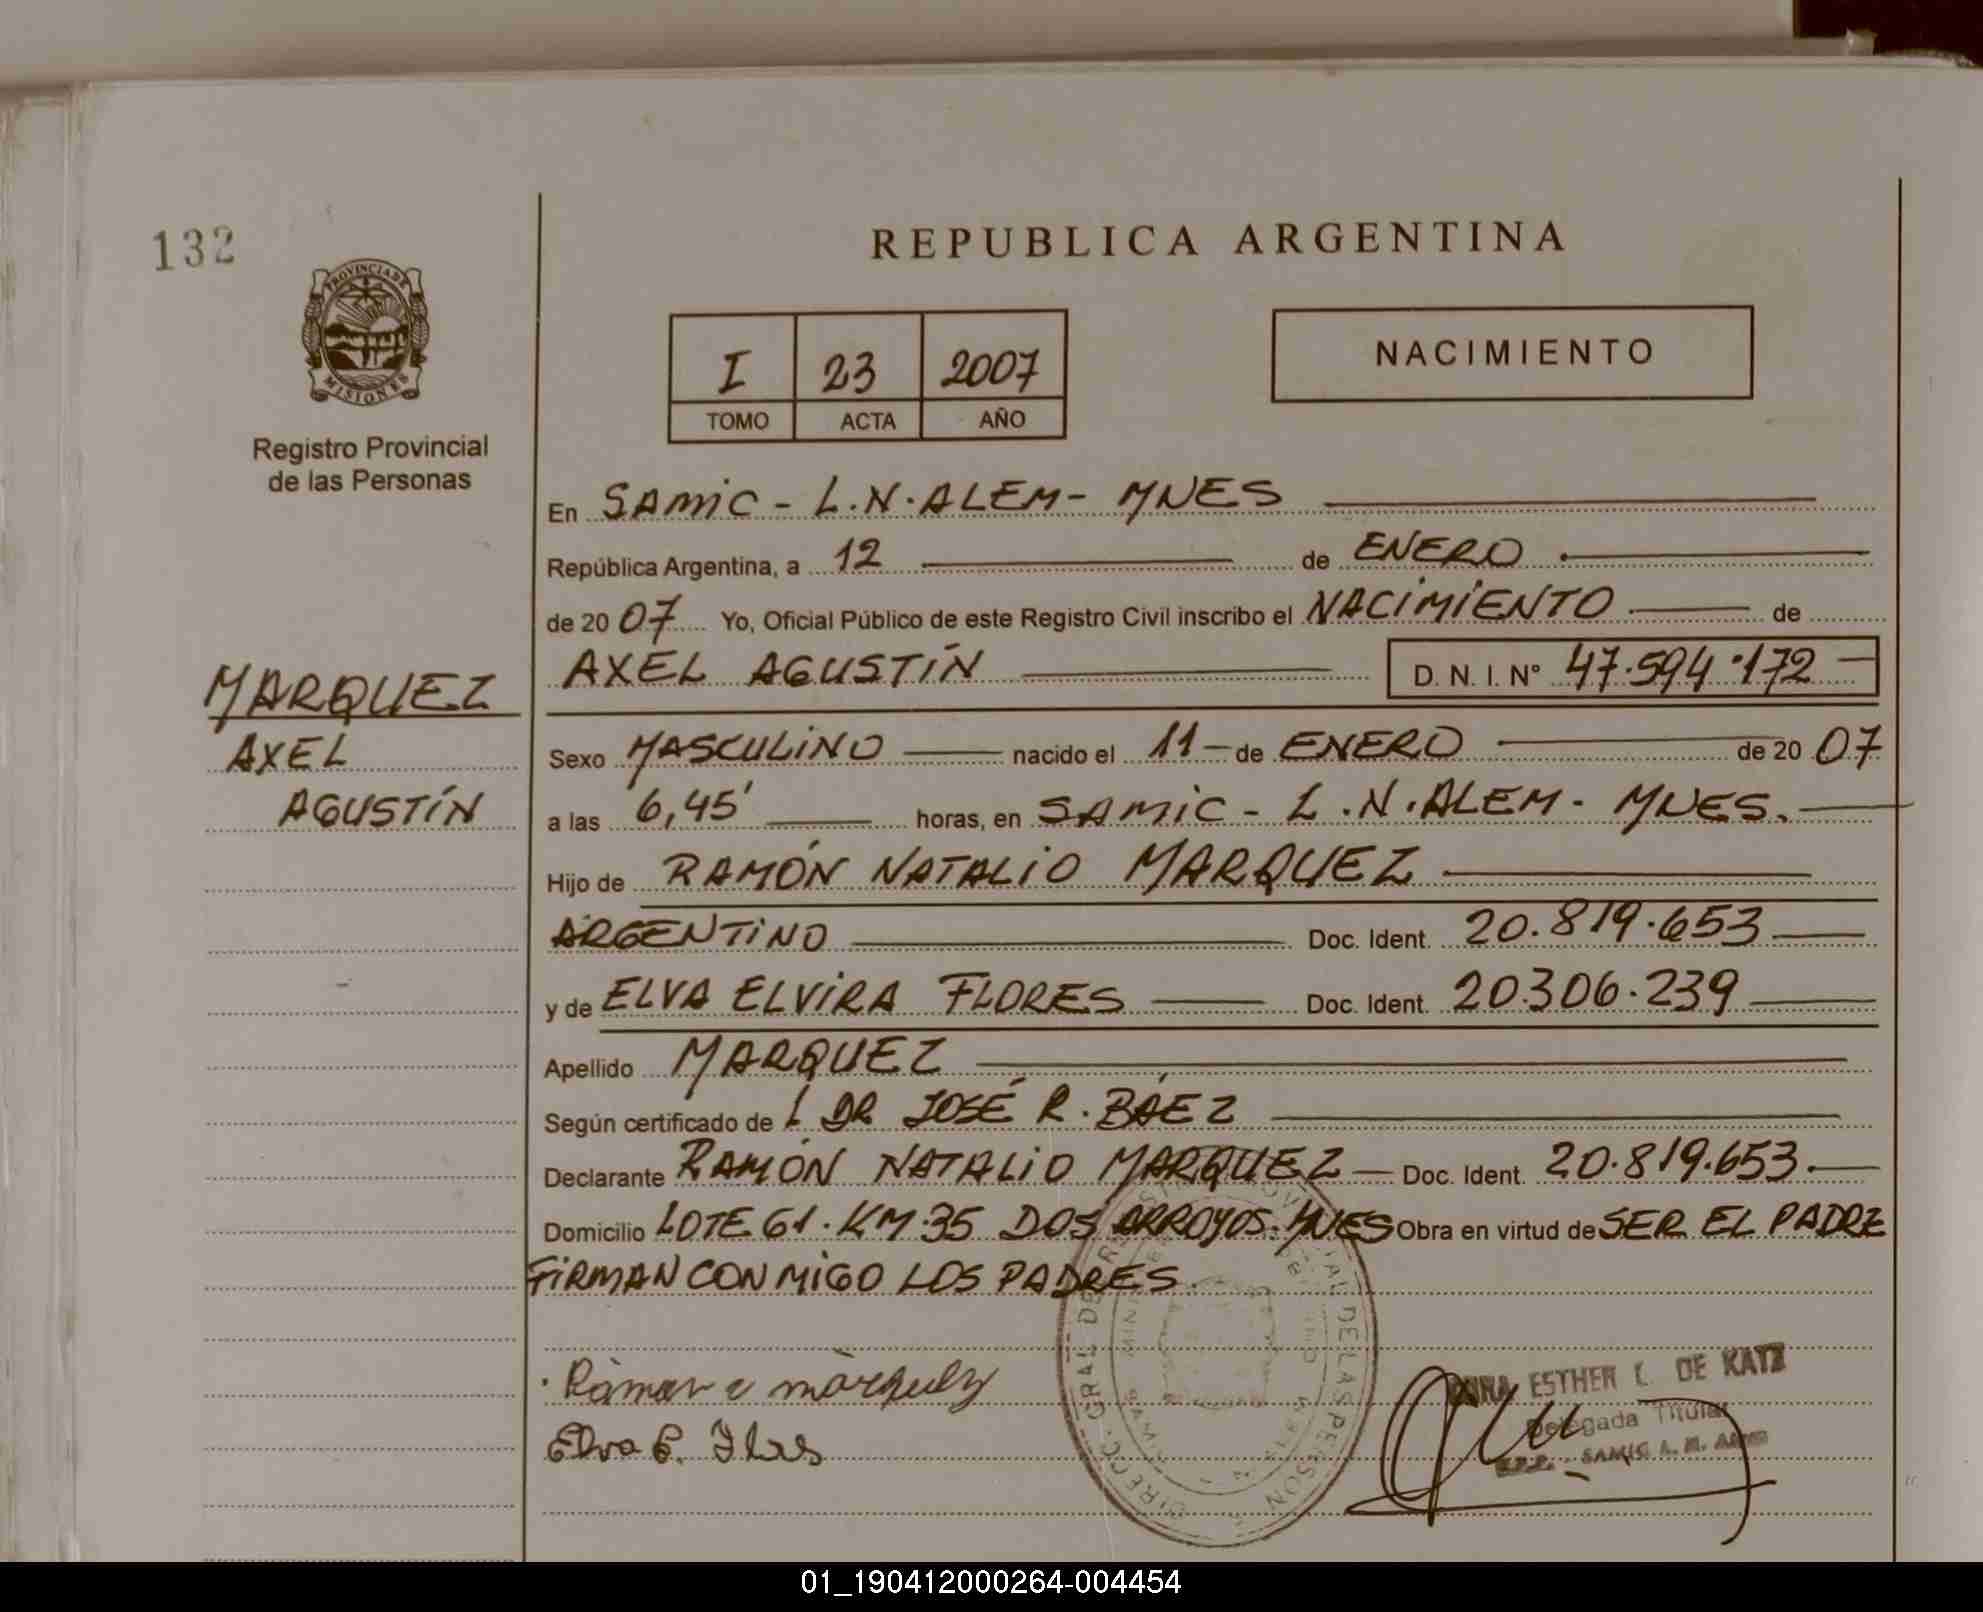 132
PROVINCIA DE
MISIONES
Registro Provincial
de las Personas
REPUBLICA ARGENTINA
I 23 2007
TOMO ACTA AÑO
NACIMIENTO
En SAMIC - L.N. ALEM - MNES
República Argentina, a 12 de ENERO
de 20 07 Yo, Oficial Público de este Registro Civil inscribo el NACIMIENTO de
AXEL AGUSTÍN D. N. I. Nº 47.594.172
MARQUEZ
AXEL
AGUSTÍN
Sexo MASCULINO nacido el 11 de ENERO de 20 07
a las 6,45' horas, en SAMIC - L.N. ALEM - MNES.
Hijo de RAMÓN NATALIO MARQUEZ
ARGENTINO Doc. Ident. 20.819.653
y de ELVA ELVIRA FLORES Doc. Ident. 20.306.239
Apellido MARQUEZ
Según certificado de L DR JOSÉ R. BÁEZ
Declarante RAMÓN NATALIO MARQUEZ Doc. Ident. 20.819.653.
Domicilio LOTE 61. KM.35 DOS ARROYOS. MNES Obra en virtud de SER EL PADRE
FIRMAN CON MIGO LOS PADRES.
Elva E.
ESTHER L. DE KATZ
Delegada Titular
SAMIC L. N. ALEM
DIRECC. GRAL DE REGISTRO PROVINCIAL DE LAS PERSONAS
01_190412000264-004454